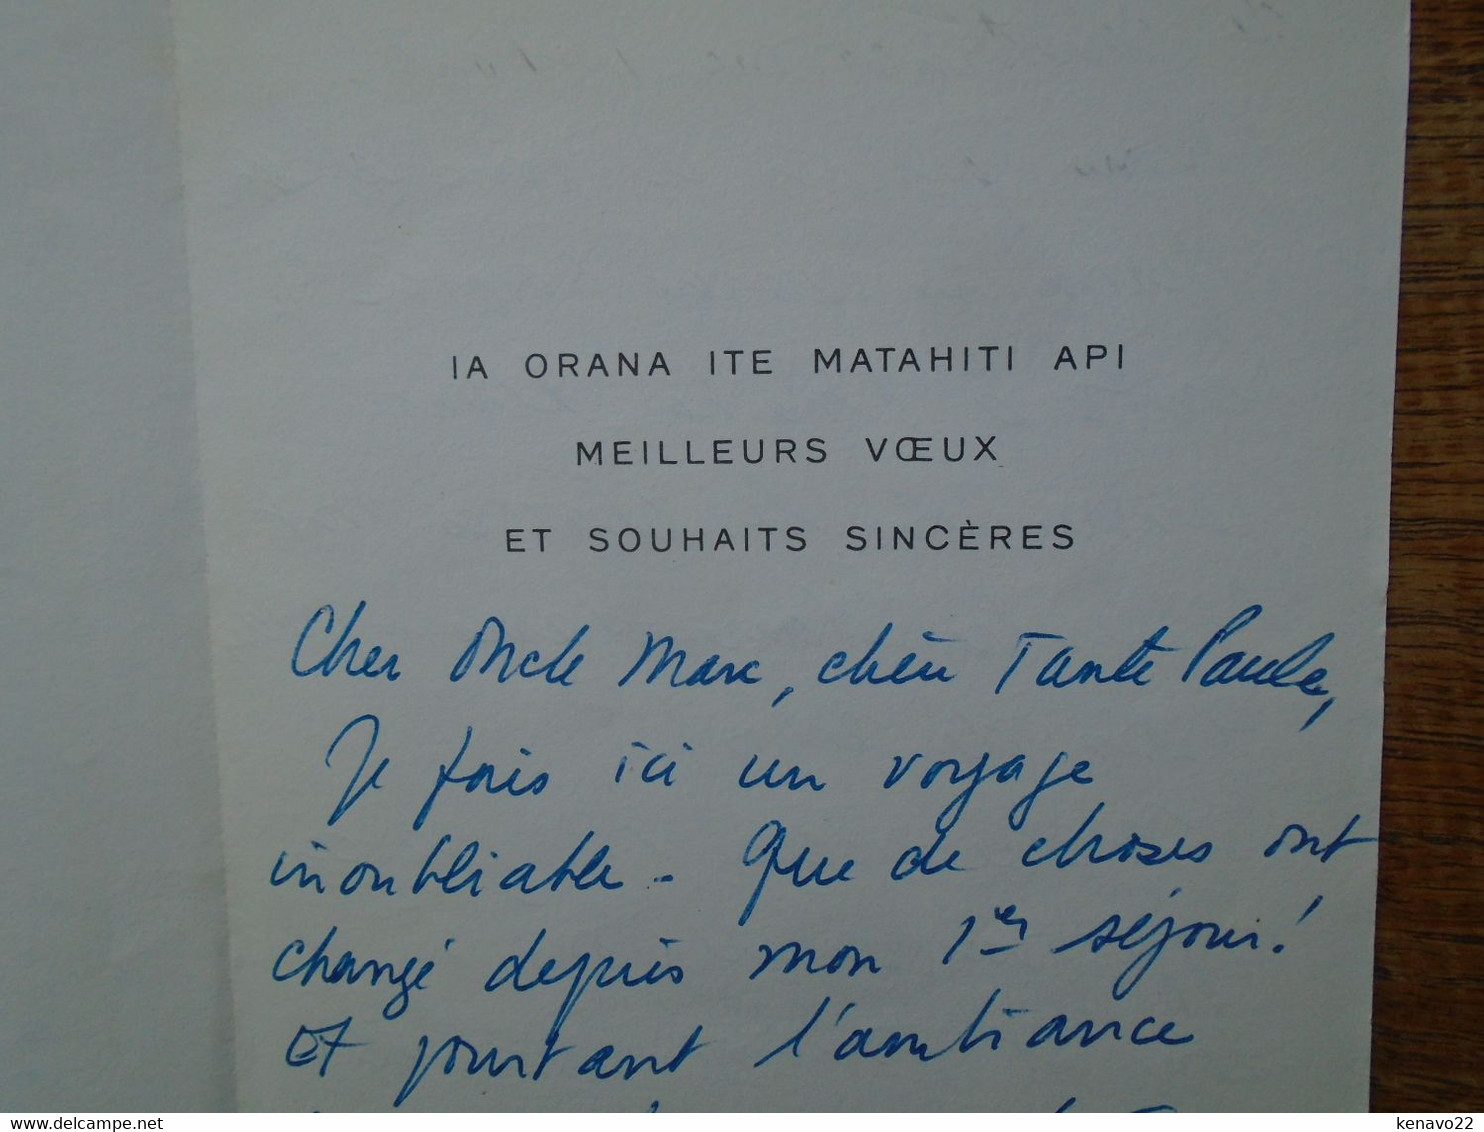 IA ORANA ITE MATAHITI API
MEILLEURS VŒUX
ET SOUHAITS SINCÈRES
Cher Oncle Marc, chère Tante Paule,
Je fais ici un voyage
inoubliable - Que de choses ont
changé depuis mon 1er séjour!
Et pourtant l'ambiance
delcampe.net
kenavo22